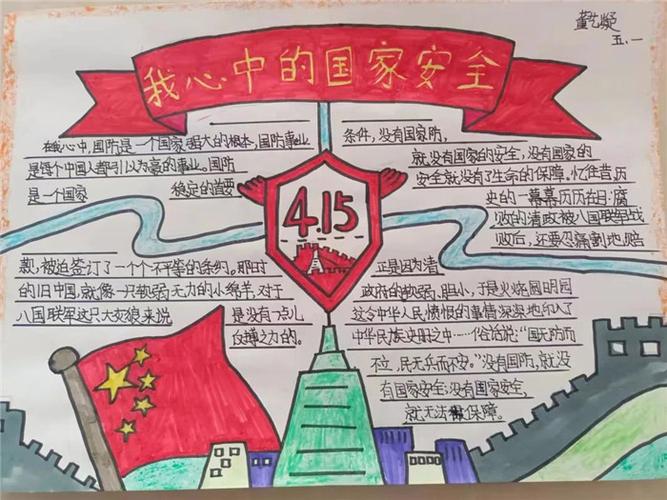 董艺凝
五.一
我心中的国家安全
在我心中,国防是一个国家强大的根本,国防事业
是每个中国人都引以为豪的事业。国防
是一个国家 稳定的首要
条件,没有国家防,
就没有国家的安全,没有国家的
安全就没有了生命的保障。忆往昔,历
史的一幕幕历历在目:腐
败的清政被八国联军战
败后,还要忍痛割地、赔
4.15
款,被迫签订了一个个不平等的条约。那时
的旧中国,就像一只软弱无力的小绵羊,对于
八国联军这只大灰狼来说 是没有一点儿
反搏之力的。
正是因为清
政府的软弱、胆小,于是火烧圆明园
这令中华人民愤恨的事情深深地印入了
中华民族史册之中…俗话说:“国无防而
不立,民无兵而不安。”没有国防,就没
有国家安全;没有国家安全,
就无法保障。